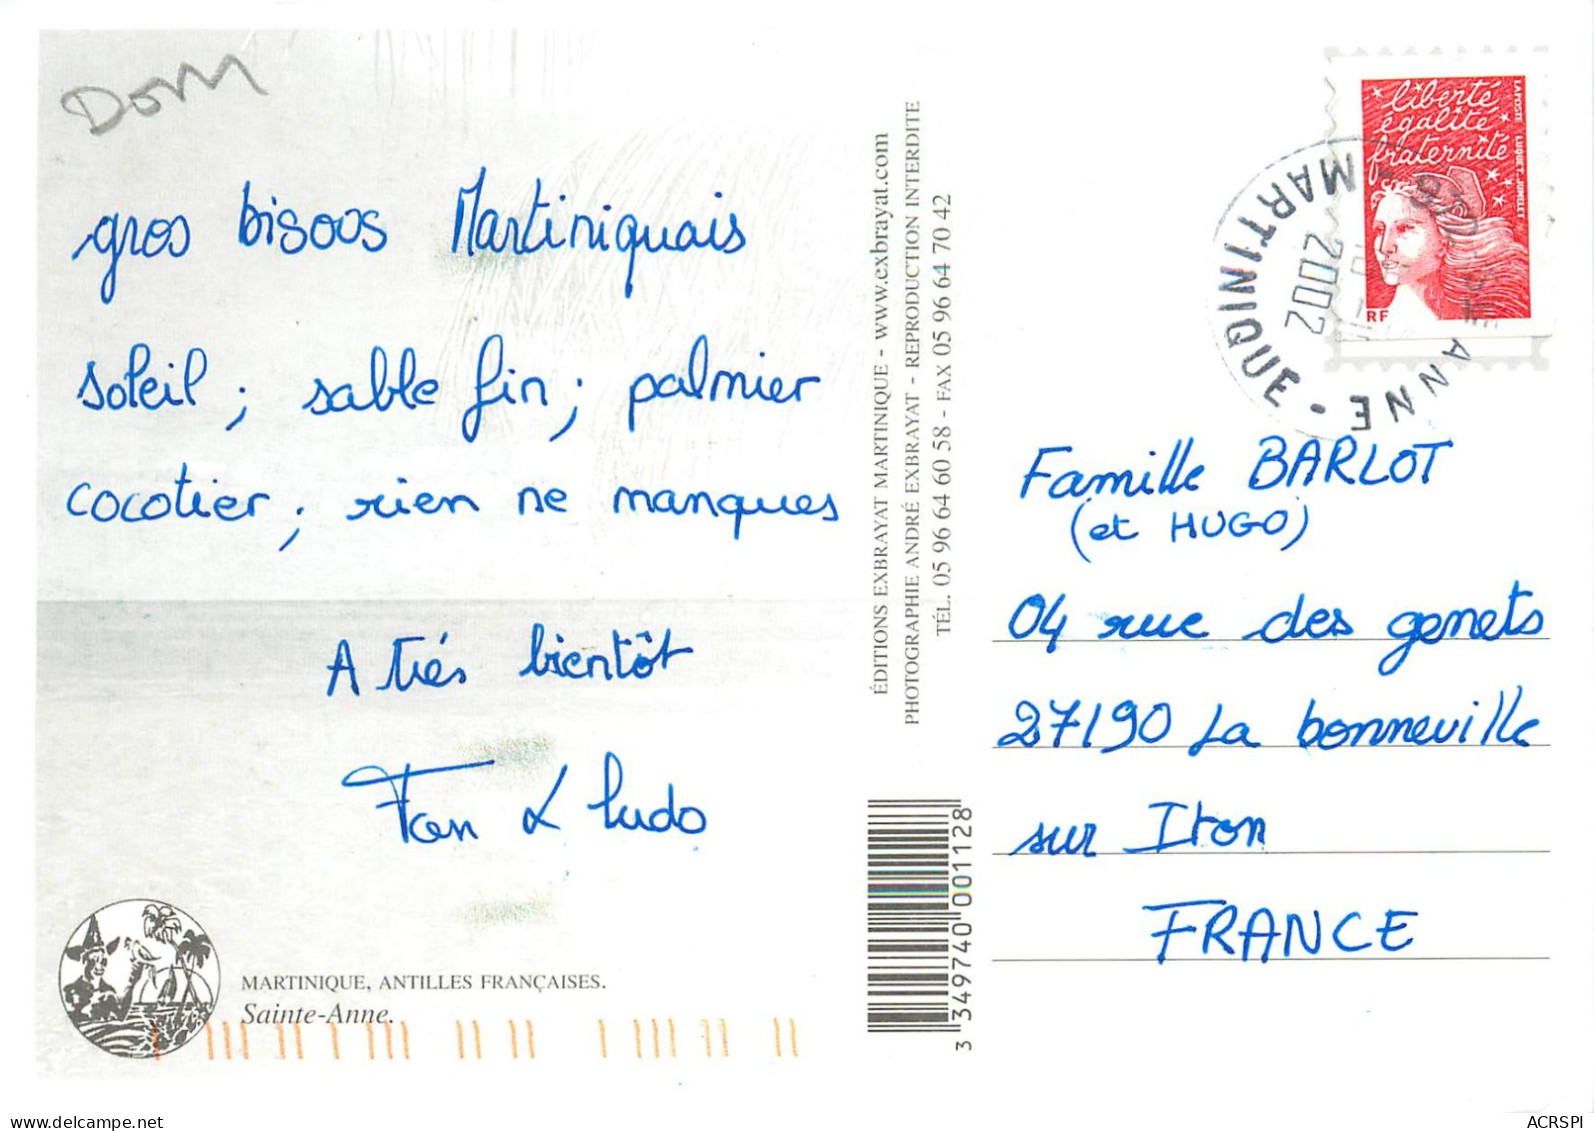 Dom
gros bisous Martiniquais
soleil ; sable fin ; palmier
cocotier ; rien ne manques
A très bientôt
Fan & Ludo
MARTINIQUE, ANTILLES FRANÇAISES.
Sainte-Anne.
ÉDITIONS EXBRAYAT MARTINIQUE - www.exbrayat.com
PHOTOGRAPHIE ANDRÉ EXBRAYAT - REPRODUCTION INTERDITE
TÉL. 05 96 64 60 58 - FAX 05 96 64 70 42
3 349740 001128
liberté
égalité
fraternité
LA POSTE LUQUET-JUMELET
RF
MARTINIQUE
ANNE
2002
Famille BARLOT
(et HUGO)
04 rue des genets
27190 La bonneville
sur Iton
FRANCE
www.delcampe.net
ACRSPI